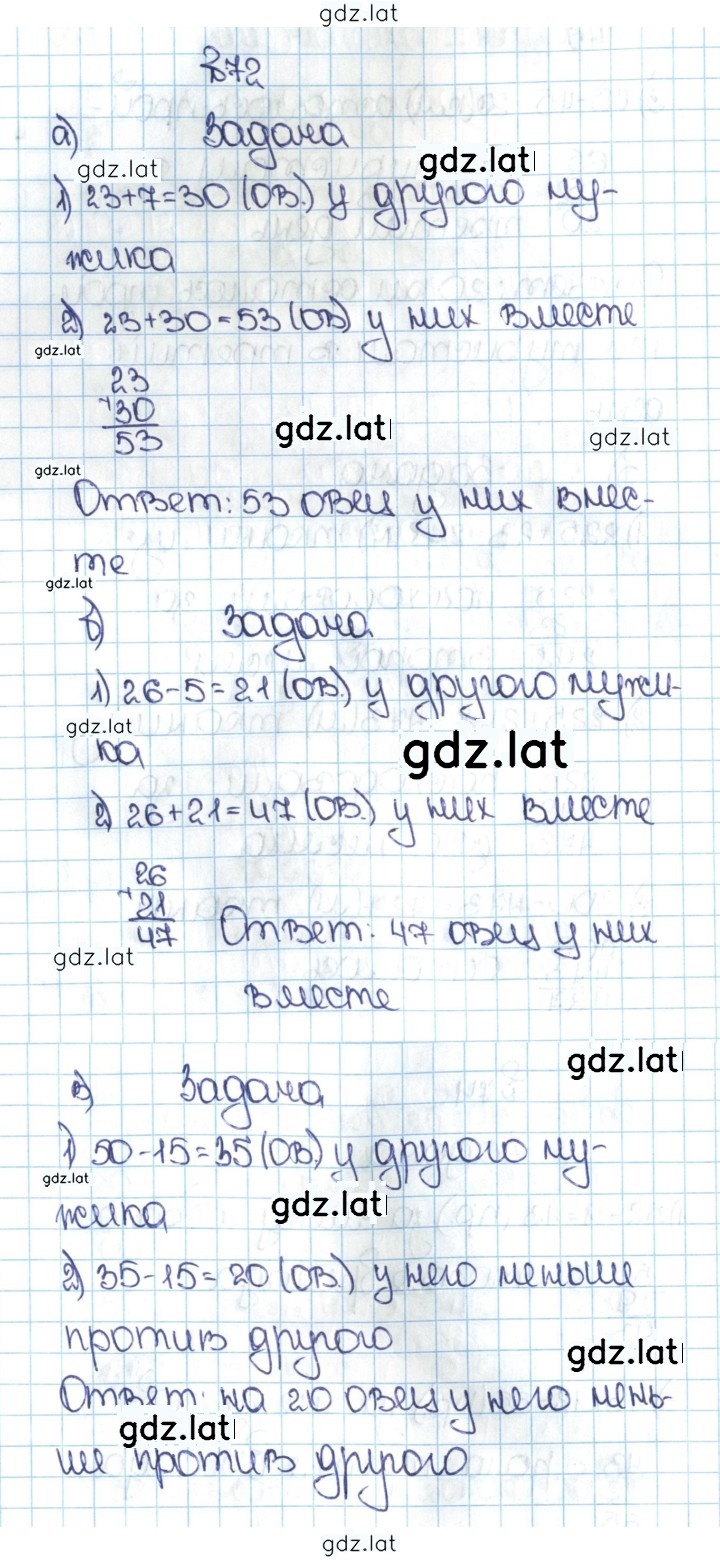 gdz.lat
872
а) Задача
gdz.lat gdz.lat
1) 23+7=30 (ОВ.) у другого му-
жика
2) 23+30=53 (ОВ) у них вместе
gdz.lat
23
+30
53
gdz.lat gdz.lat
gdz.lat
Ответ: 53 овец у них вмес-
те
gdz.lat
б) Задача
1) 26-5=21 (ОВ.) у другого мужи-
gdz.lat
ка gdz.lat
2) 26+21=47 (ОВ.) у них вместе
26
+21
47 Ответ: 47 овец у них
gdz.lat
вместе
gdz.lat
в) Задача
1) 50-15=35 (ОВ) у другого му-
gdz.lat
жика gdz.lat
2) 35-15=20 (ОВ.) у него меньше
против другого gdz.lat
Ответ: на 20 овец у него мень-
gdz.lat
ше против другого
gdz.lat